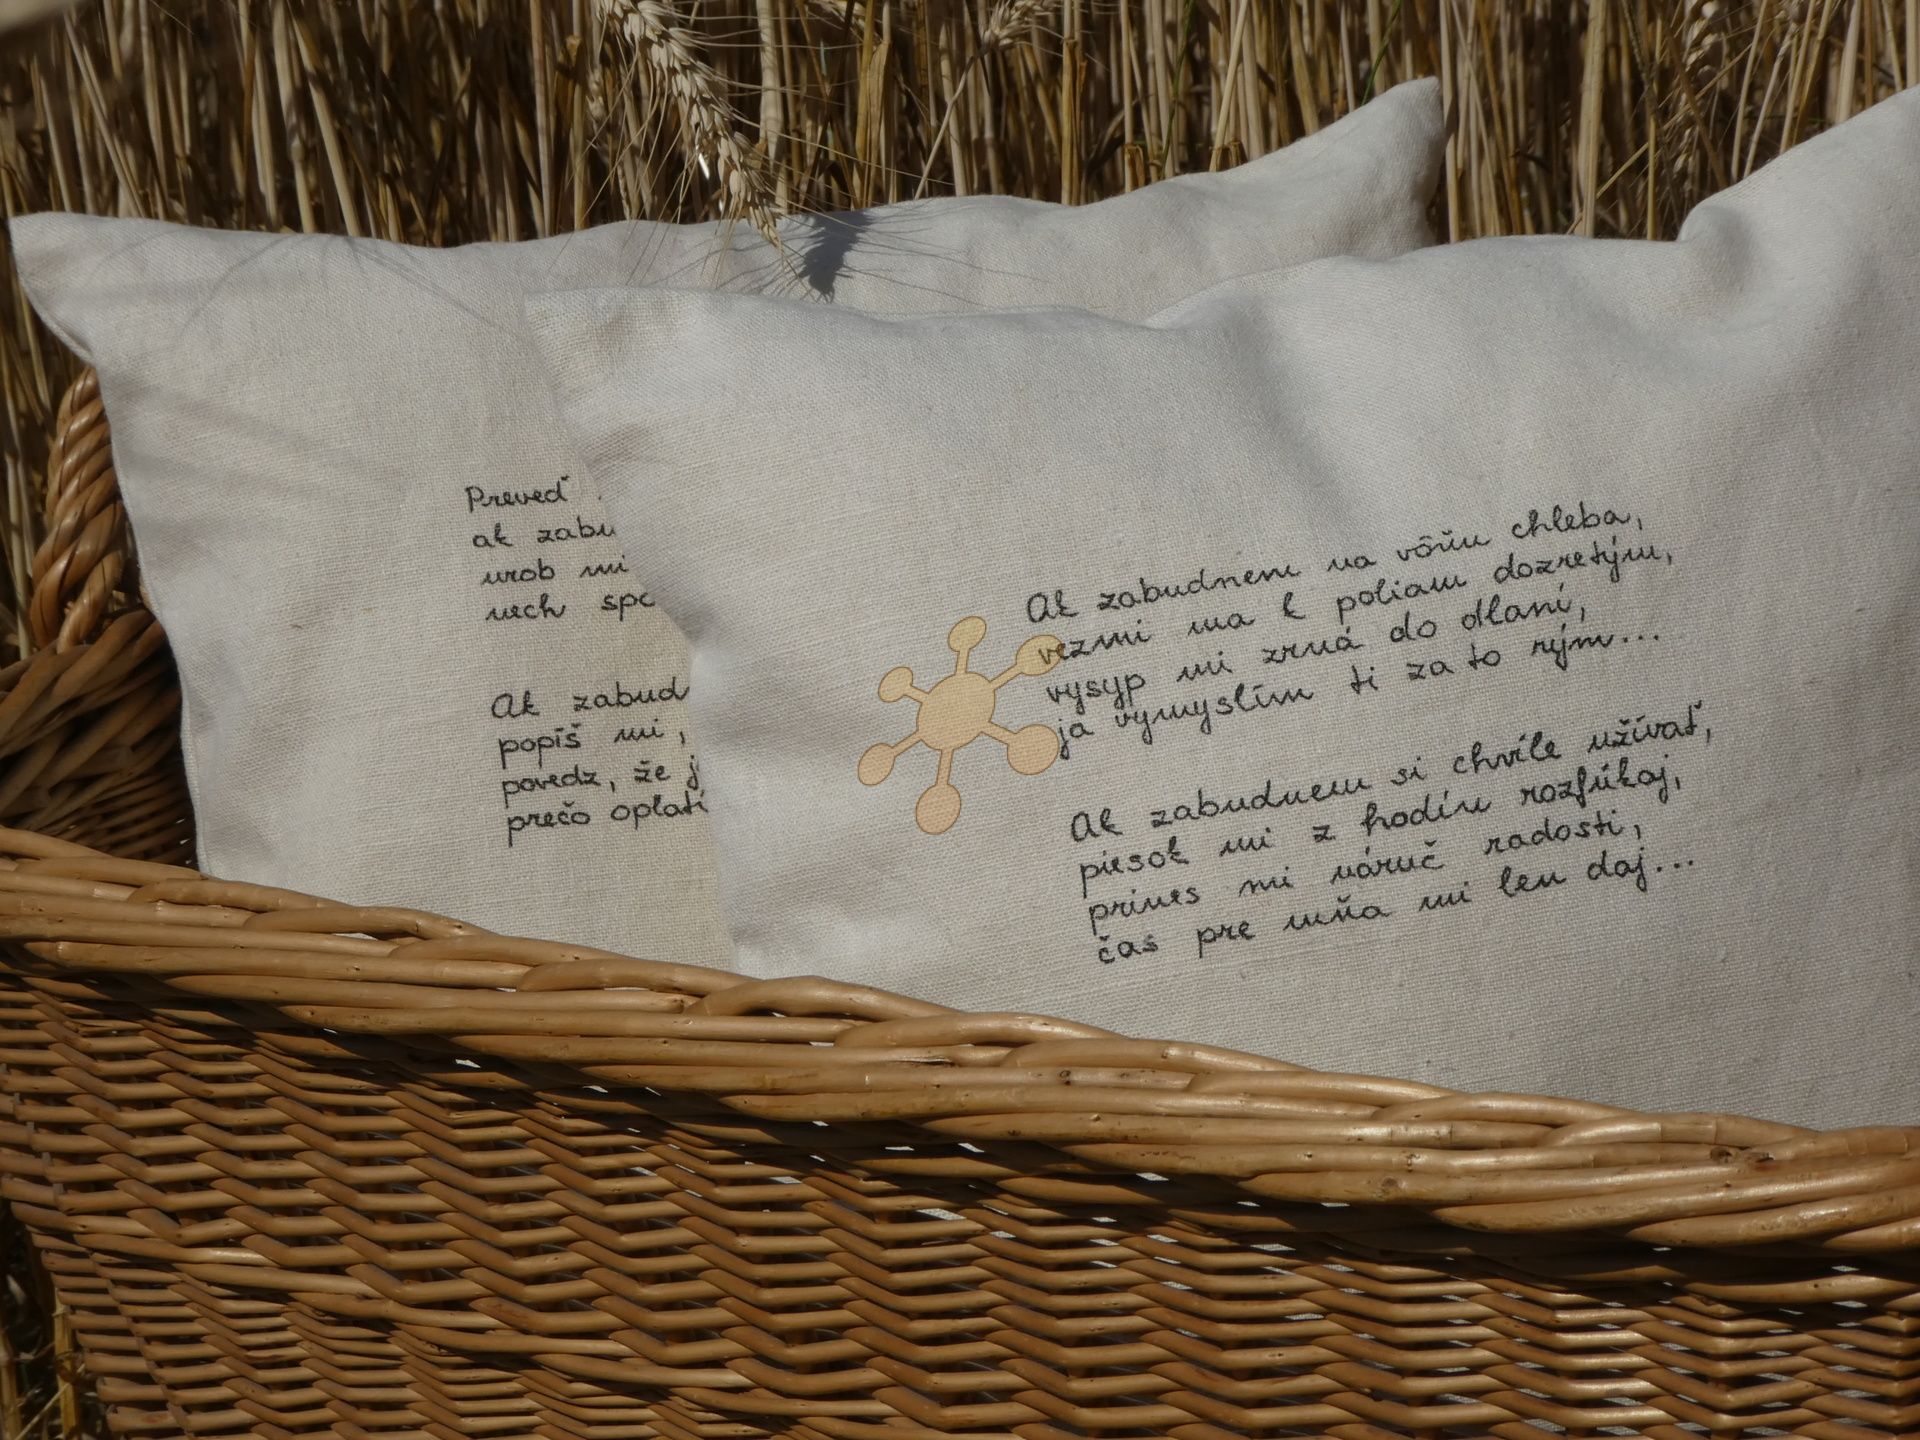 Preveď
ak zabu
urob mi
nech spo
Ak zabud
popíš mi,
povedz, že j
prečo oplatí
Ak zabudnem na vôňu chleba,
vezmi ma k poliam dozretým,
vysyp mi zrná do dlaní,
ja vymyslím ti za to rým...
Ak zabudnem si chvíle užívať,
piesok mi z hodín rozfúkaj,
prines mi náruč radosti,
čas pre mňa mi len daj...